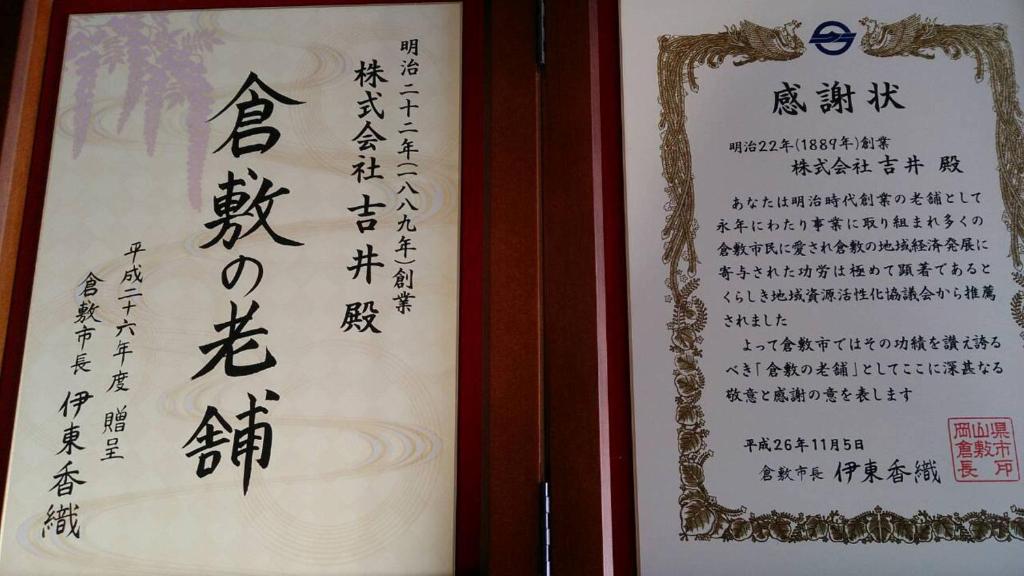 明治二十二年(一八八九年)創業
株式会社吉井殿
倉敷の老舗
平成二十六年度 贈呈
倉敷市長 伊東香織
感謝状
明治22年(1889年)創業
株式会社 吉井 殿
あなたは明治時代創業の老舗として
永年にわたり事業に取り組まれ多くの
倉敷市民に愛され倉敷の地域経済発展に
寄与された功労は極めて顕著であると
くらしき地域資源活性化協議会から推薦
されました
よって倉敷市ではその功績を讃え誇る
べき「倉敷の老舗」としてここに深甚なる
敬意と感謝の意を表します
平成26年11月5日
倉敷市長 伊東香織
岡山県
倉敷市
長印